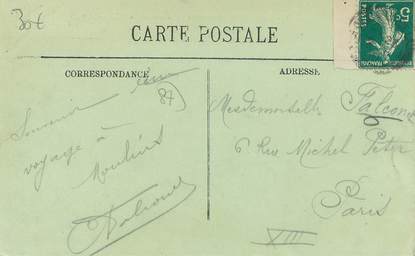 30€
CARTE POSTALE
5c
CORRESPONDANCE
ADRESSE
87
Souvenir
voyage à
Moulins
Mesdemoiselles Falcon
6 Rue Michel Peter
Paris
XIII